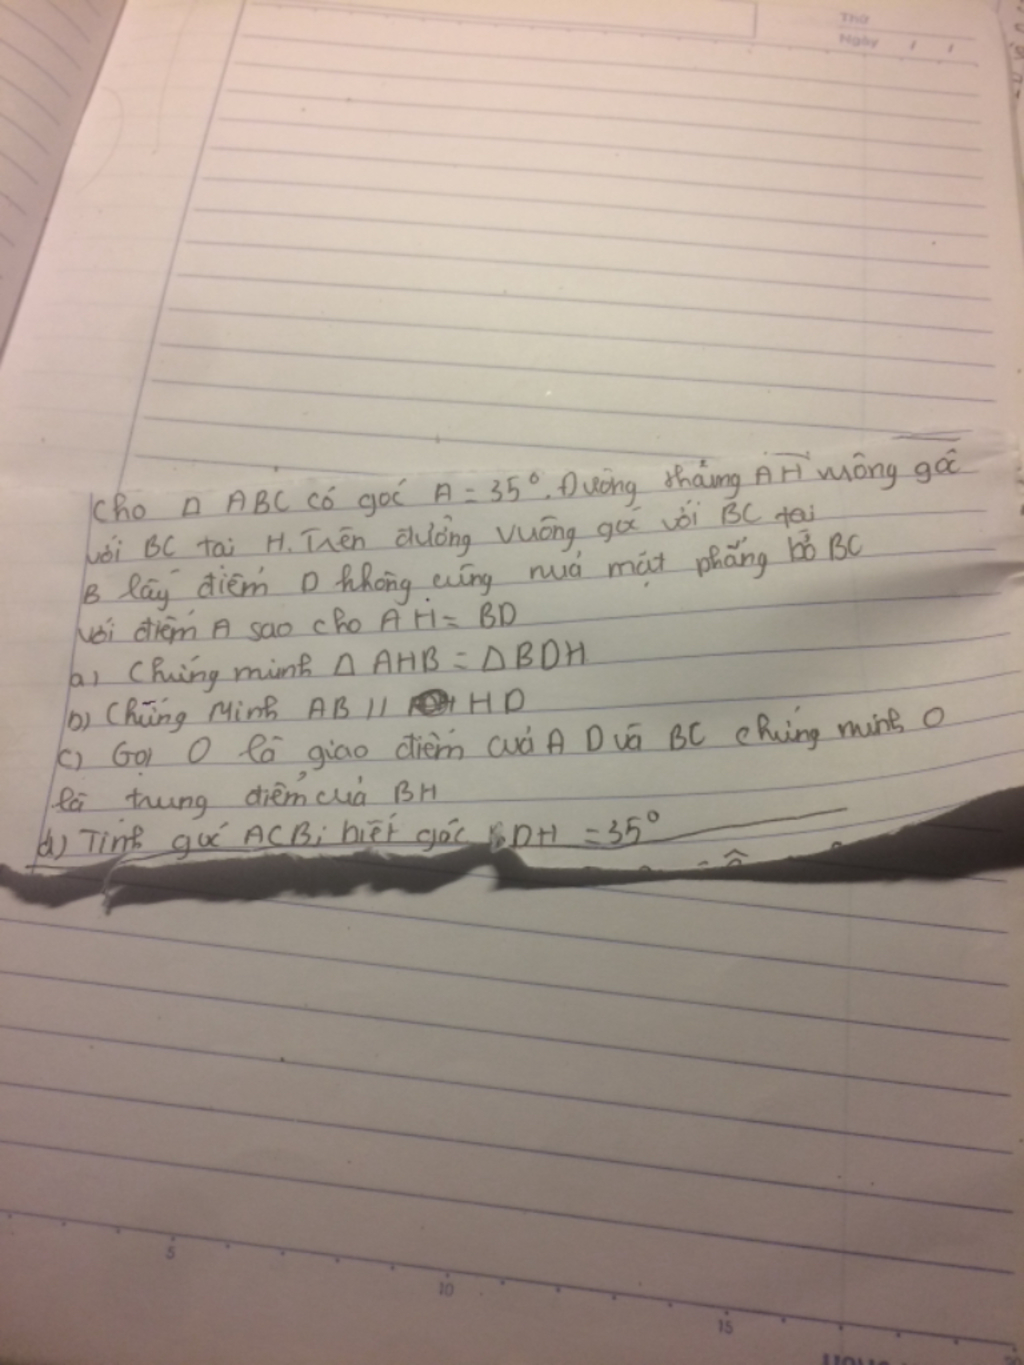 Thứ
Ngày / /
Cho Δ ABC có góc A = 35°. Đường thẳng AH vuông góc
với BC tại H. Trên đường vuông góc với BC tại
B lấy điểm D không cùng nuả mặt phẳng bờ BC
với điểm A sao cho AH = BD
a) Chứng minh Δ AHB = Δ BDH
b) Chứng Minh AB // HD
c) Gọi O là giao điểm cuả A D và BC chứng minh O
là trung điểm cuả BH
d) Tính góc ACB; biết góc BDH = 35°
5
10
15